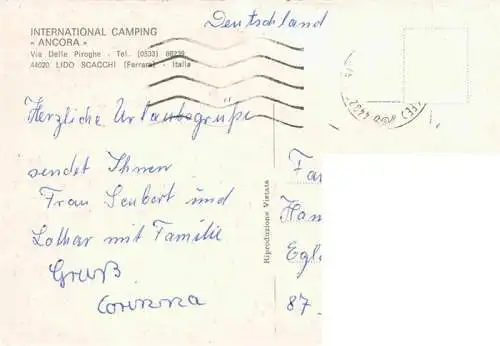 Deutschland
INTERNATIONAL CAMPING
« ANCORA »
Via Delle Piroghe - Tel. (0533) 88239
44020 LIDO SCACCHI (Ferrara) - Italia
Herzliche Urlaubsgrüße
sendet Ihnen
Frau Seubert und
Lothar mit Familie
Gruß
Corinna
Riproduzione Vietata
Fam
Han
Egl
87